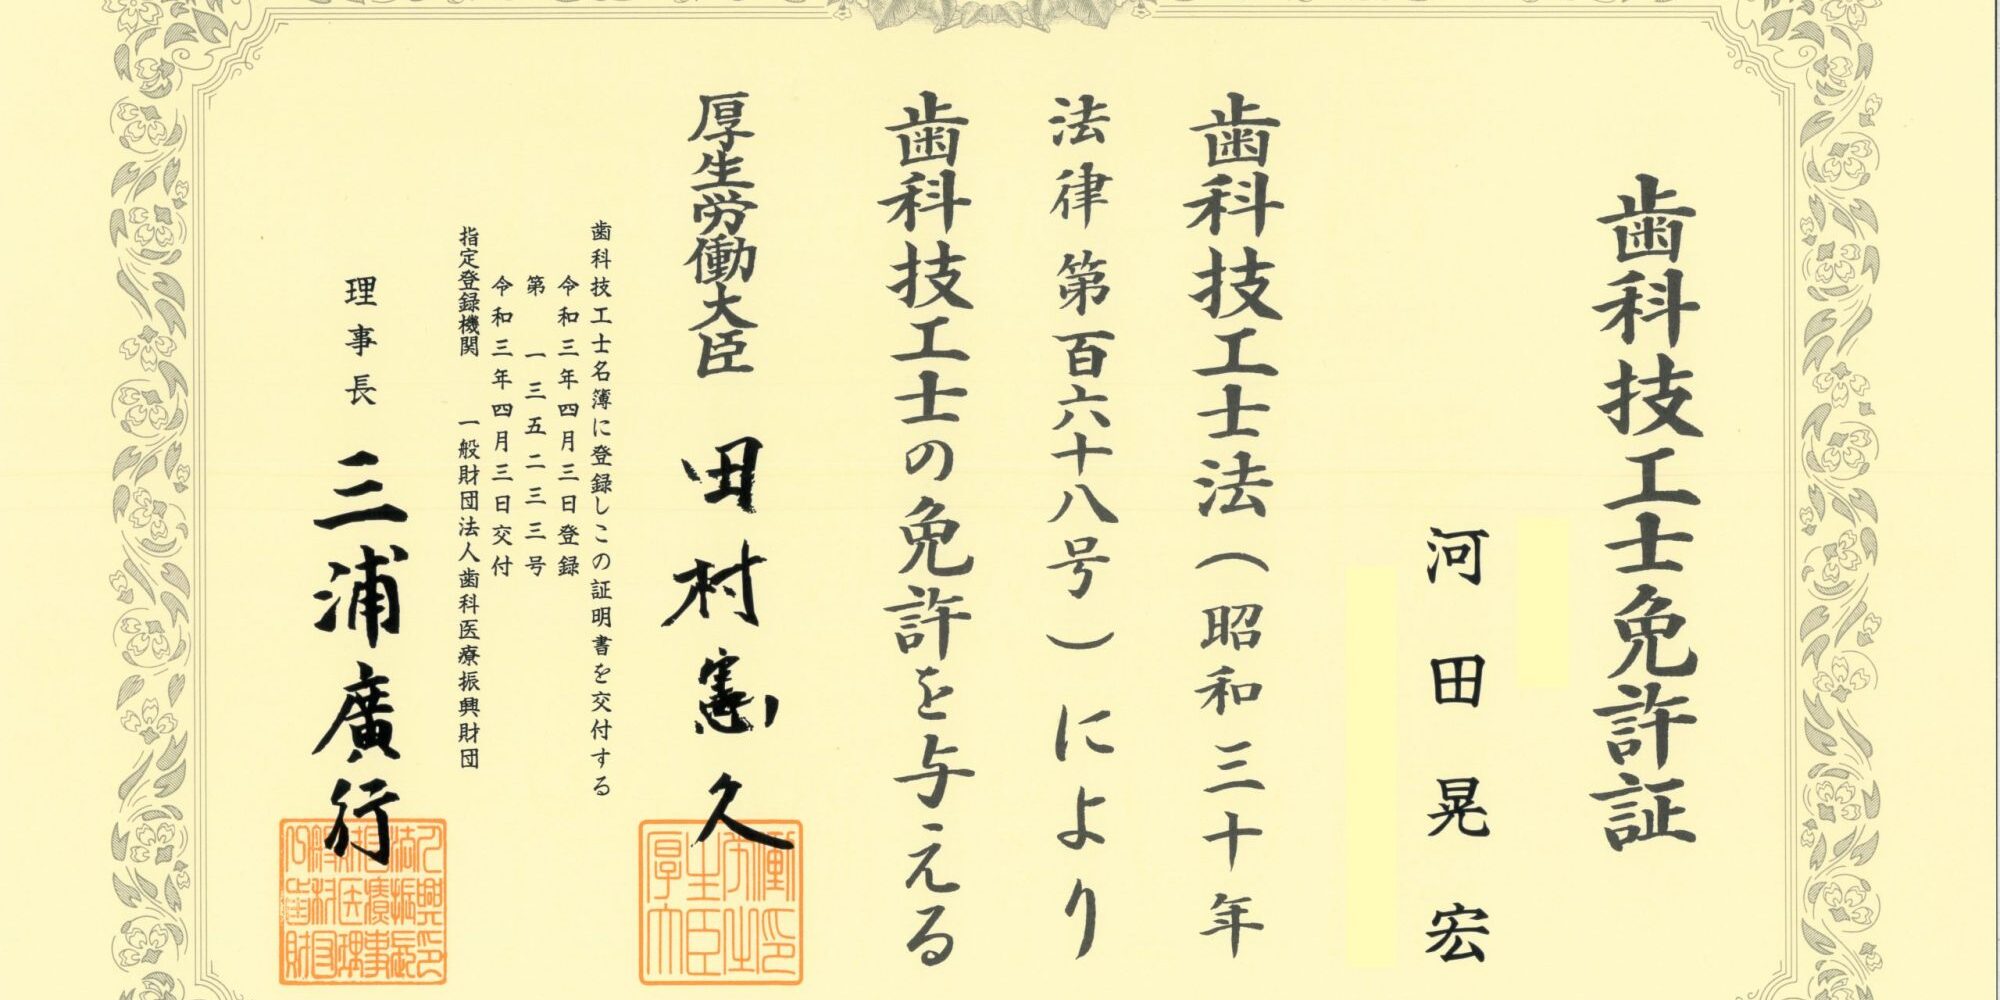 歯科技工士免許証
河田晃宏
歯科技工士法（昭和三十年
法律第百六十八号）により
歯科技工士の免許を与える
厚生労働大臣 田村憲久
歯科技工士名簿に登録しこの証明書を交付する
令和三年四月三日登録
第一三五二三三号
令和三年四月三日交付
指定登録機関 一般財団法人歯科医療振興財団
理事長 三浦廣行